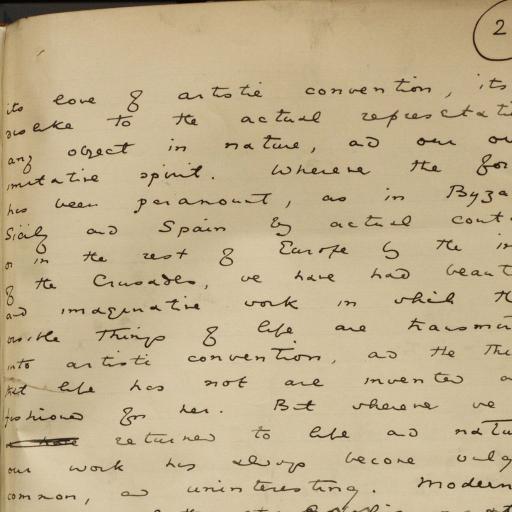 2
its love of artistic convention, its
dislike to the actual representati
any object in nature, and our ow
imitative spirit. Wherever the for
has been paramount, as in Byza
Sicily and Spain by actual cont
or in the rest of Europe by the in
of the Crusades, we have had beaut
and imaginative work in which th
visible things of life are transmu
into artistic convention, and the thi
that life has not are invented a
fashioned for her. But wherever we
returned to life and natu
our work has always become vulg
common, and uninteresting. Modern